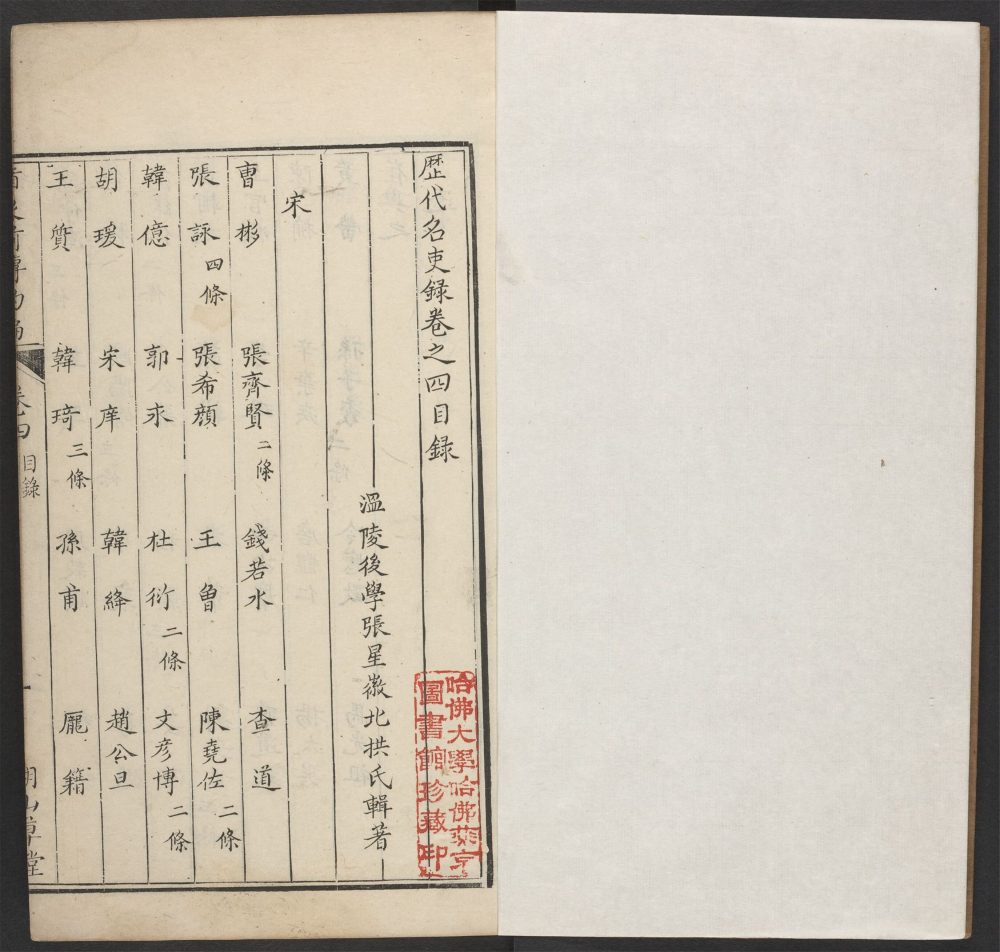 歷代名吏錄卷之四目錄
溫陵後學張星徽北拱氏輯著
宋
曹彬 張齊賢二條 錢若水 查道
張詠四條 張希顏 王曾 陳堯佐二條
韓億 郭永 杜衍二條 文彥博二條
胡瑗 宋庠 韓絳 趙公旦
王質 韓琦三條 孫甫 龐籍
卷四 目錄 一 堂
哈佛大學哈佛燕京
圖書館珍藏印